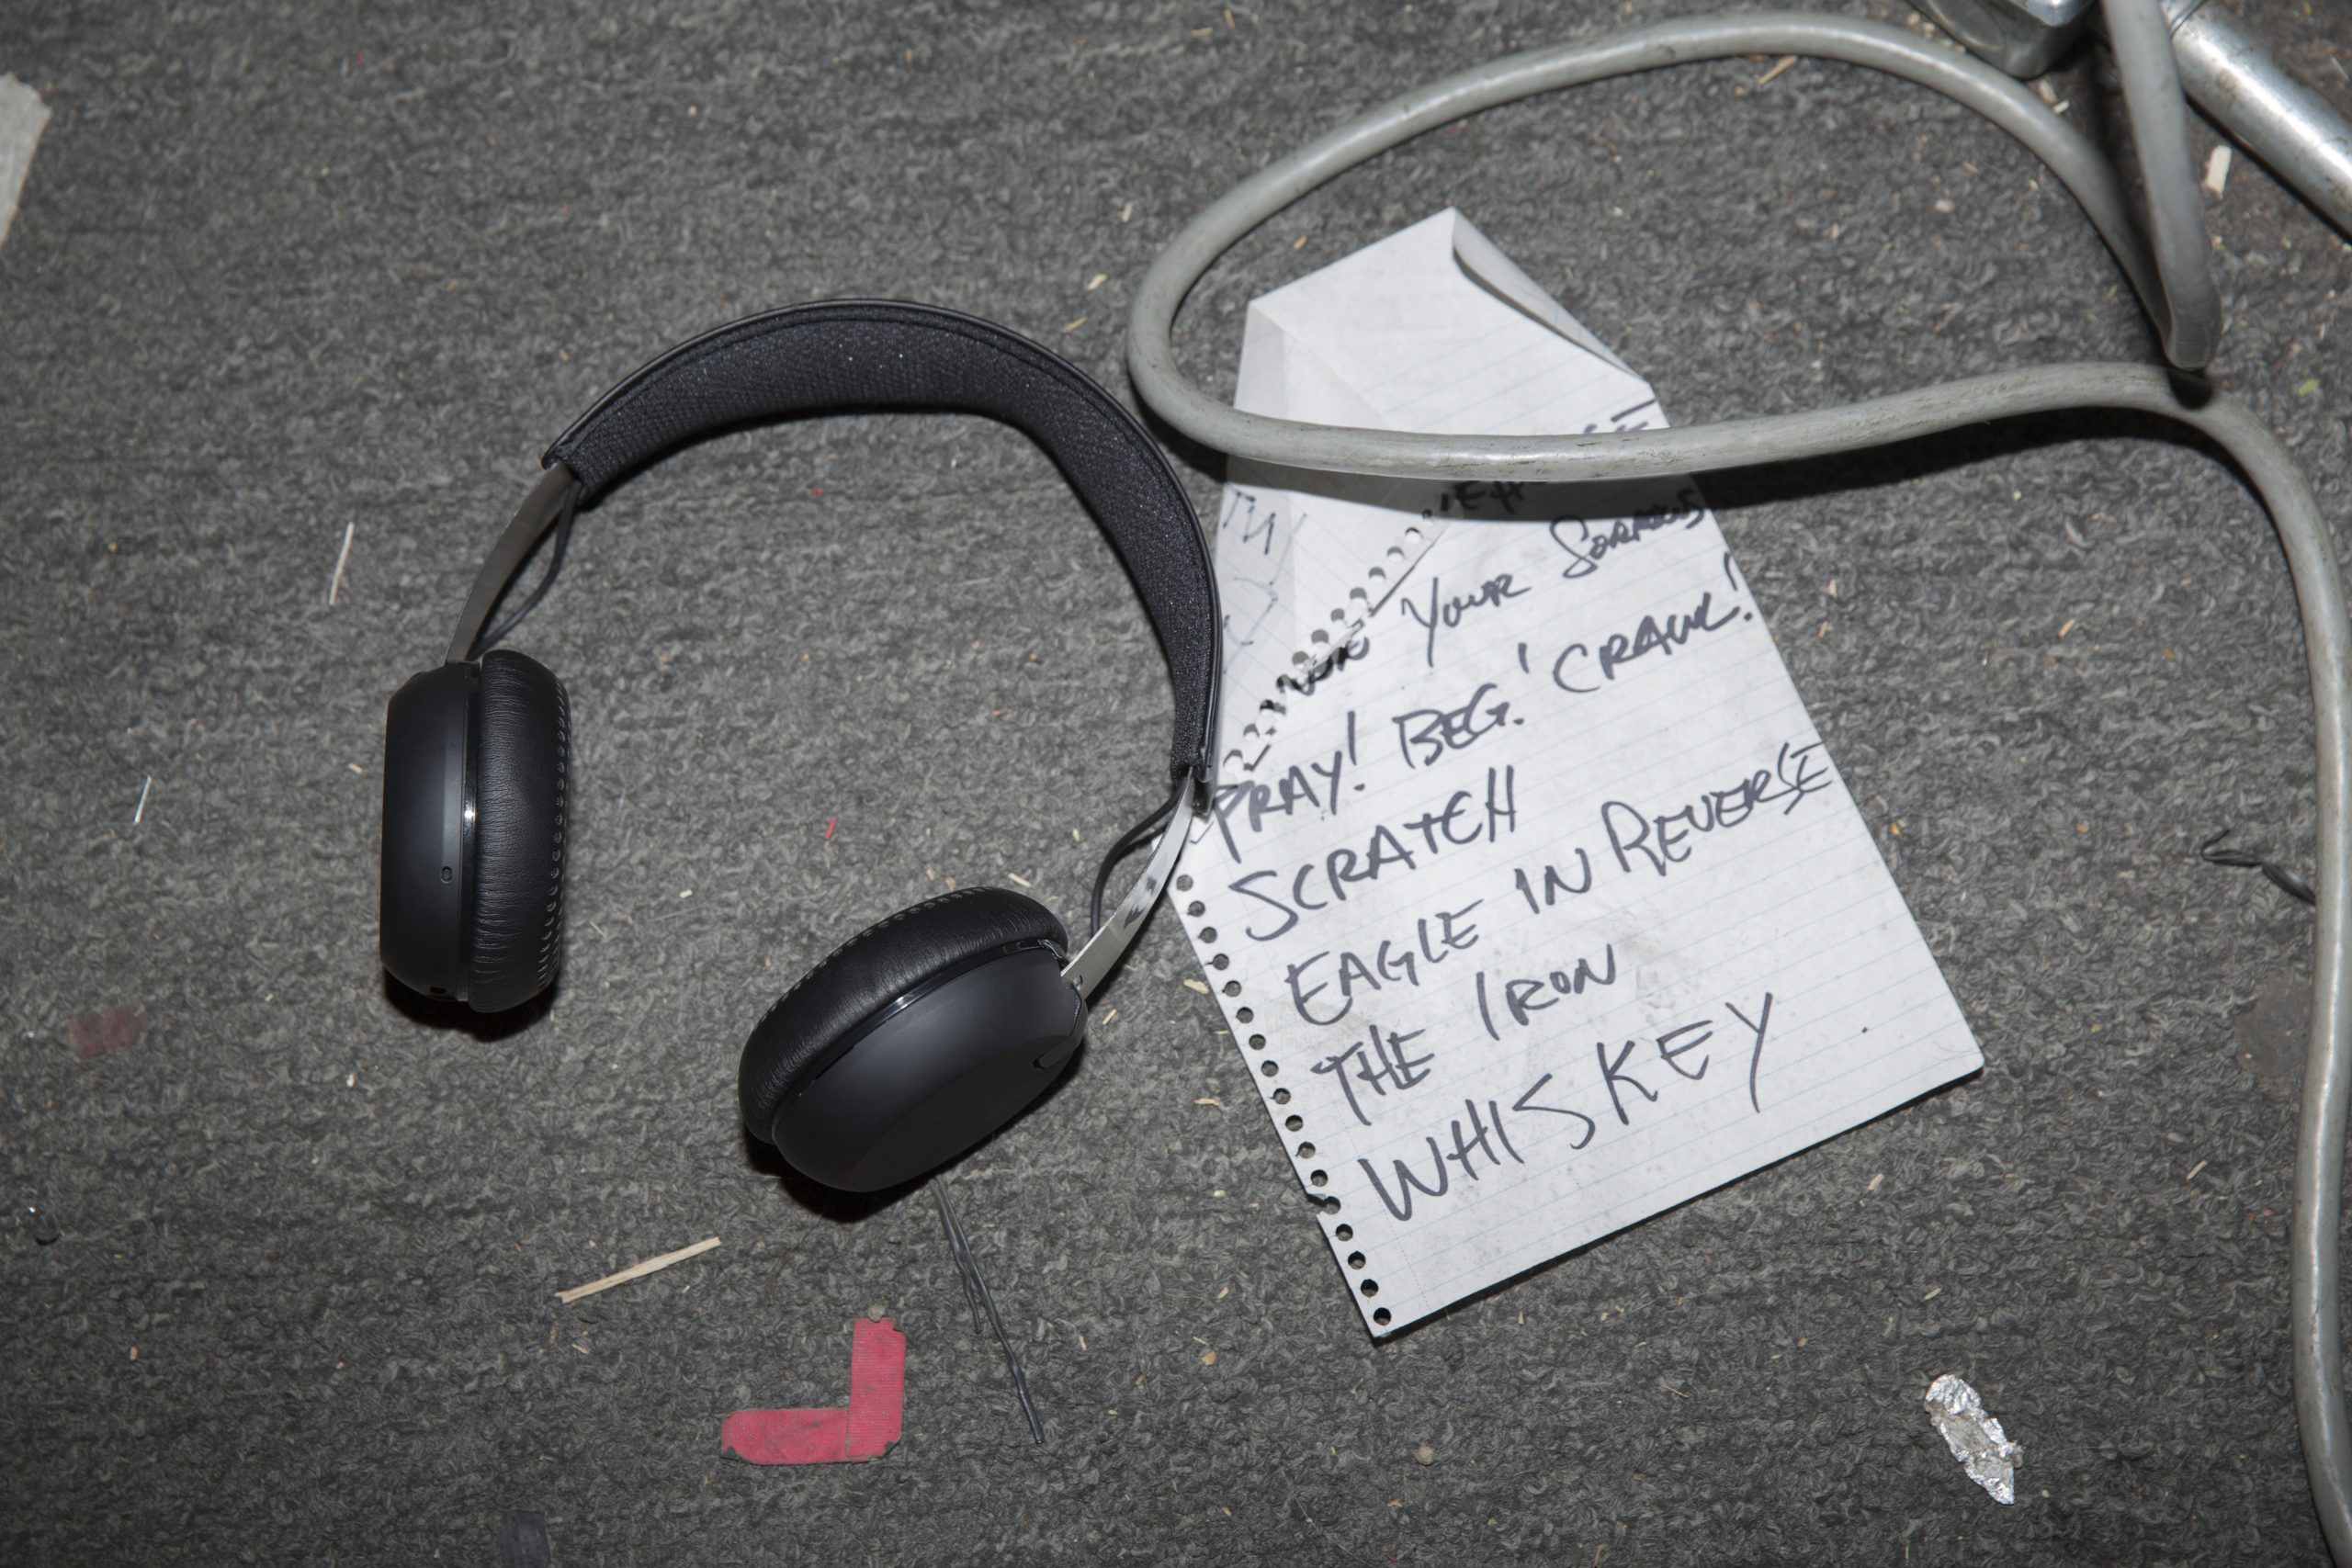 Your Sorrows
PRAY! BEG! CRAWL!
SCRATCH
EAGLE IN REVERSE
THE IRON
WHISKEY